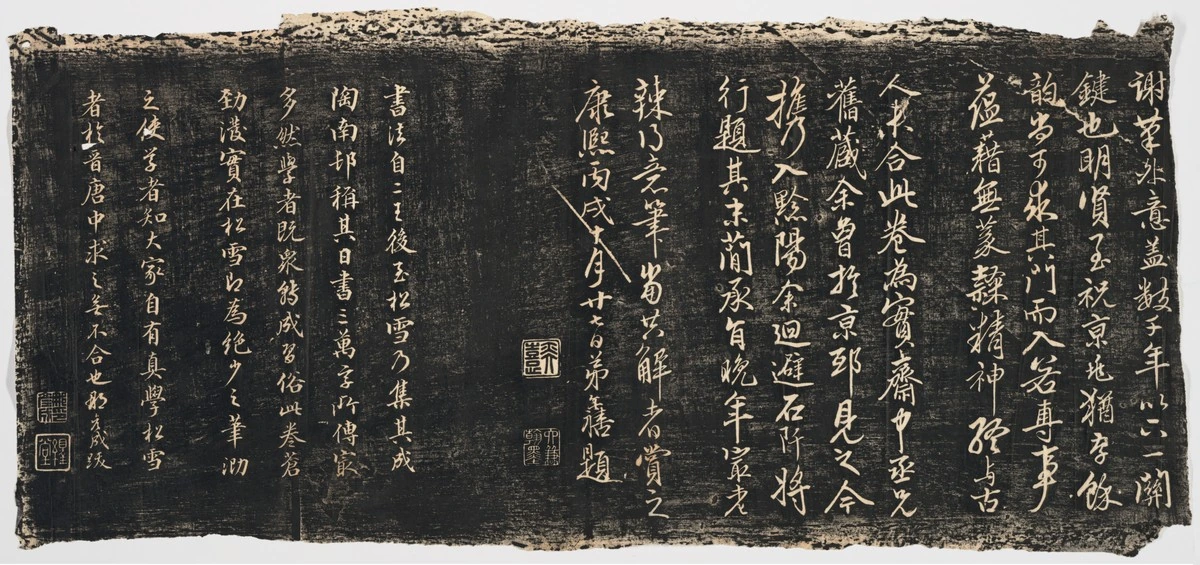 謝筆外意蓋數千年以只一關
鍵也明賢至祝京兆猶存餘
韵尚可求其門而入若專事
蘊藉無蒙隸精神終與古
人未合此卷為實齋中丞兄
舊藏余曾於京邸見之今
攜入黔陽余迴避石阡將
行題其末蕳承旨晚年最老
辣得意筆當共解者賞之
康熙丙戌十月廿七日弟膳題
書法自二王後至松雪乃集其成
陶南邨稱其日書三萬字所傳最
多然學者既衆轉成習俗此卷蒼
勁潑實在松雪即為絕少之筆泐
之使學者知大家自有真學松雪
者於晉唐中求之無不合也郘葴跋